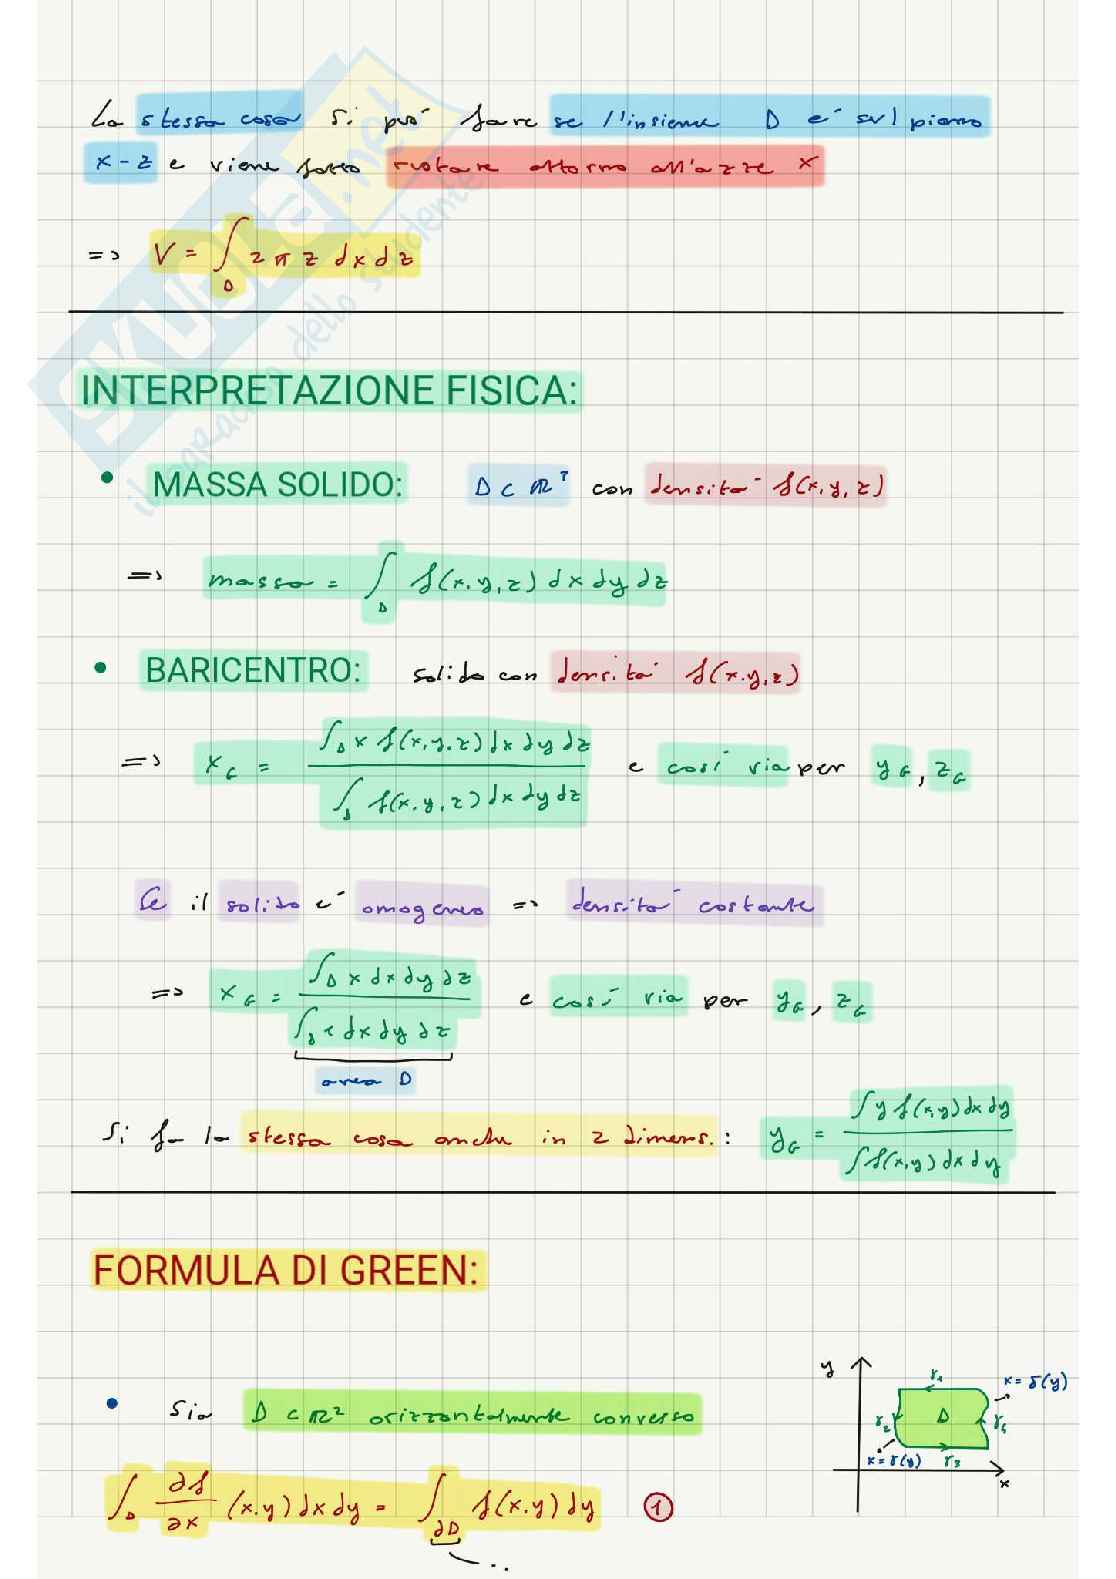 La stessa cosa si può fare se l'insieme D è sul piano
x-z e viene fatto ruotare attorno all'asse x
=> V = ∫_D 2 π z dx dz
SKUOLA.net
il paradiso dello studente
INTERPRETAZIONE FISICA:
• MASSA SOLIDO: D ⊂ ℝ³ con densità f(x,y,z)
=> massa = ∫_D f(x,y,z) dx dy dz
• BARICENTRO: solido con densità f(x,y,z)
=> x_G = ∫_D x f(x,y,z) dx dy dz / ∫_D f(x,y,z) dx dy dz e così via per y_G, z_G
Se il solido è omogeneo => densità costante
=> x_G = ∫_D x dx dy dz / ∫_D 1 dx dy dz e così via per y_G, z_G
area D
Si fa la stessa cosa anche in 2 dimens.: y_G = ∫ y f(x,y) dx dy / ∫ f(x,y) dx dy
FORMULA DI GREEN:
y
γ₁
x = δ(y)
• Sia D ⊂ ℝ² orizzontalmente convesso
γ₂ D
x = γ(y) γ₃
x
∫_D ∂f/∂x (x,y) dx dy = ∫_∂D f(x,y) dy ①